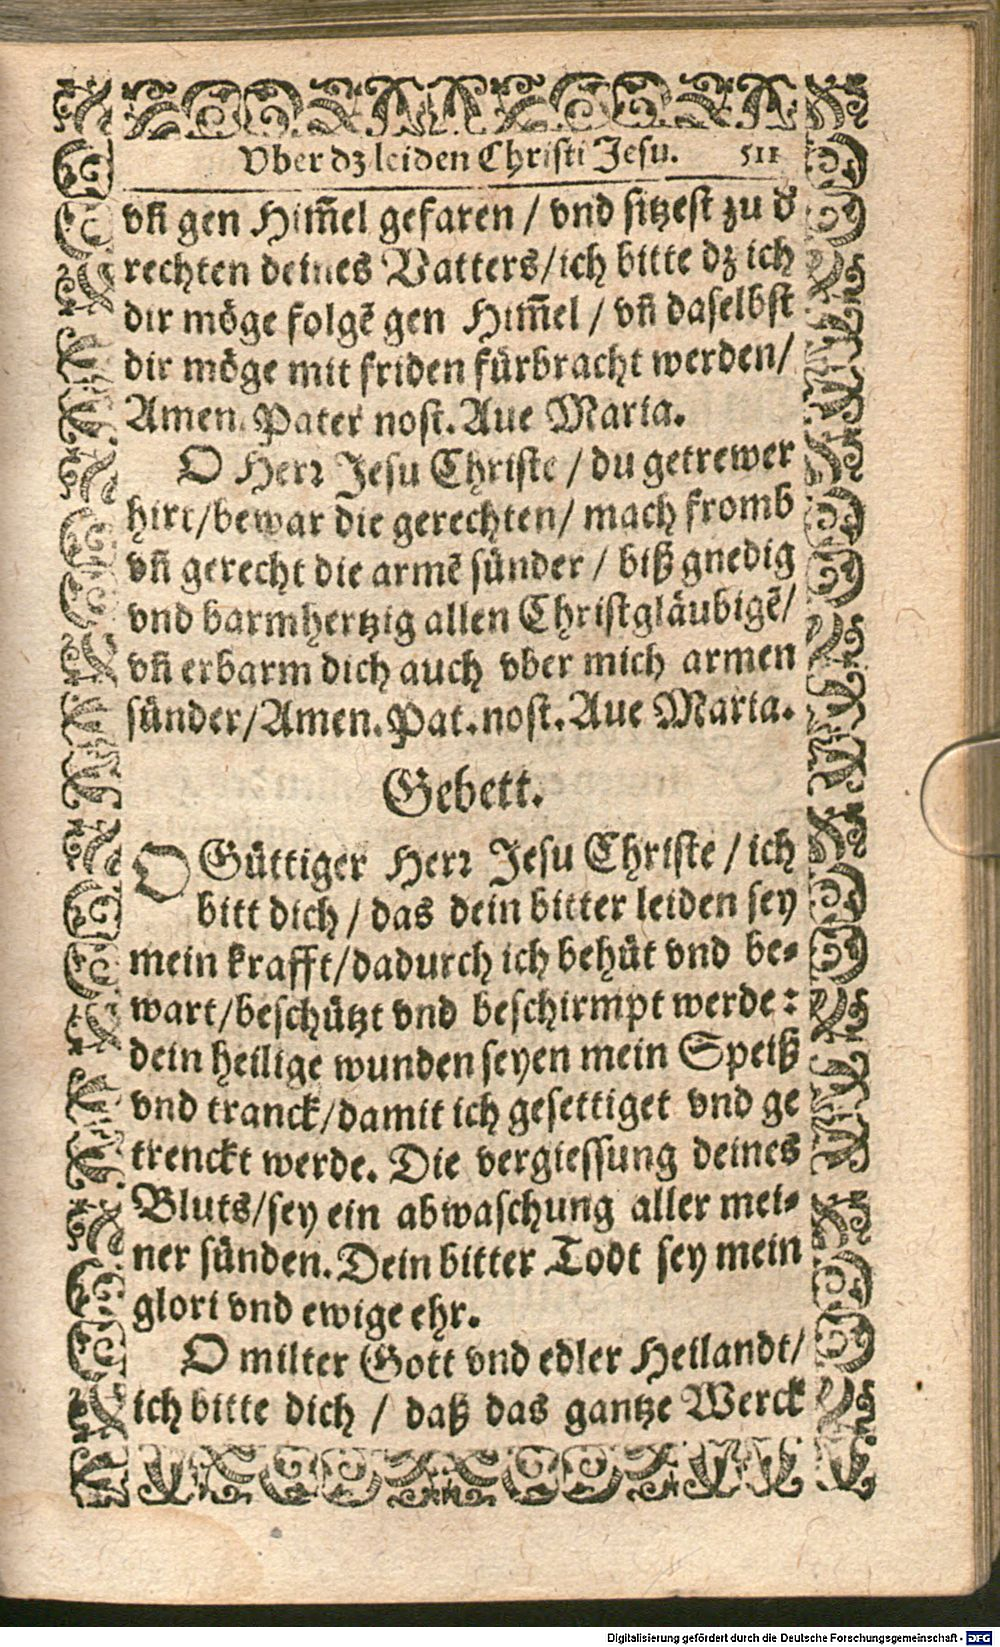 Vber dz leiden Christi Jesu. 511
vn̄ gen Him̄el gefaren / vnd sitzest zu d̕
rechten deines Vatters/ich bitte dz ich
dir möge folgē gen Him̄el / vn̄ daselbst
dir möge mit friden fürbracht werden/
Amen. Pater nost. Aue Maria.
O Herꝛ Jesu Christe / du getrewer
hirt/bewar die gerechten/ mach fromb
vn̄ gerecht die armē sünder / biß gnedig
vnd barmhertzig allen Christgläubigē/
vn̄ erbarm dich auch vber mich armen
sünder/Amen. Pat. nost. Aue Maria.
Gebett.
O Güttiger Herꝛ Jesu Christe / ich
bitt dich / das dein bitter leiden sey
mein krafft/dadurch ich behüt vnd be-
wart/beschützt vnd beschirmpt werde:
dein heilige wunden seyen mein Speiß
vnd tranck/damit ich gesettiget vnd ge
trenckt werde. Die vergiessung deines
Bluts/sey ein abwaschung aller mei-
ner sünden. Dein bitter Todt sey mein
glori vnd ewige ehr.
O milter Gott vnd edler Heilandt/
ich bitte dich / daß das gantze Werck
Digitalisierung gefördert durch die Deutsche Forschungsgemeinschaft - DFG